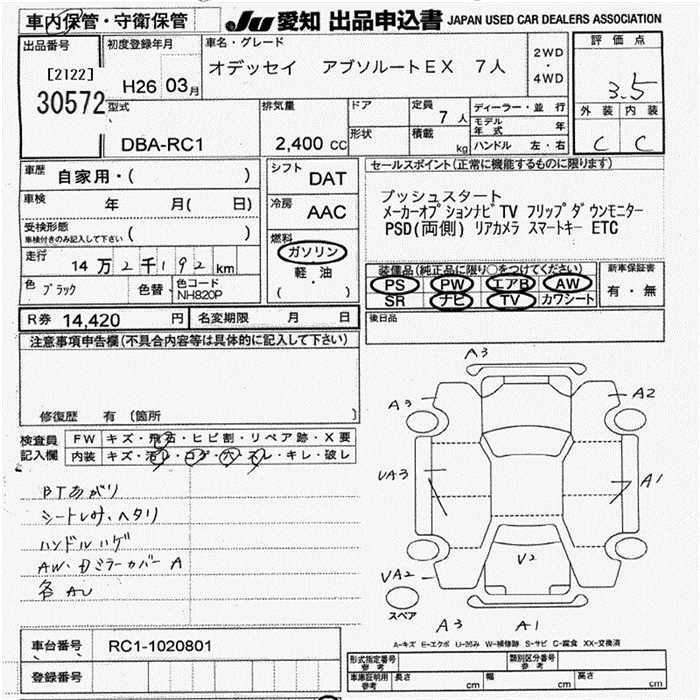 車内保管・守衛保管
JU 愛知 出品申込書 JAPAN USED CAR DEALERS ASSOCIATION
出品番号
[2122]
30572
初度登録年月
H26 03月
車名・グレード
オデッセイ アブソルートEX 7人
2WD
・
4WD
評価点
3.5
外装 内装
C C
型式
DBA-RC1
排気量
2,400 CC
ドア
形状
定員
7 人
積載
kg
ディーラー・並行
モデル年式 年
ハンドル 左・右
車歴
自家用・( )
車検
年 月( 日)
受検形態
車検付きのみ記入して下さい ( )
走行
14万2千192km
色
ブラック
色替
色コード
NH820P
シフト
DAT
冷房
AAC
燃料
ガソリン
軽・油
( )
セールスポイント(正常に機能するものに限ります)
プッシュスタート
メーカーオプションナビ TV フリップダウンモニター
PSD(両側) リアカメラ スマートキー ETC
装備品(純正品に限り○をつけてください)
PS PW エアB AW
SR ナビ TV カワシート
新車保証書
有・無
R券 14,420 円
名変期限 月 日
後日品
注意事項申告欄(不具合内容等は具体的に記入して下さい)
修復歴 有 〔箇所 〕
検査員
記入欄
FW キズ・飛石・ヒビ割・リペア跡・X要
内装 キズ・汚レ・コゲ・穴・スレ・キレ・破レ
BTあがり
シートしみ、ヘタリ
ハンドルハゲ
AW・Dミラーカバー A
各AU
A3
A3
A2
UA3
A1
V2
UA2
スペア
A3
A1
A-キズ E-エクボ U-凹み W-補修跡 S-サビ C-腐食 XX-交換済
車台番号
RC1-1020801
登録番号
形式指定番号
参考
類別区分番号
参考
車庫証明用
参考
長さ cm
幅 cm
高さ cm